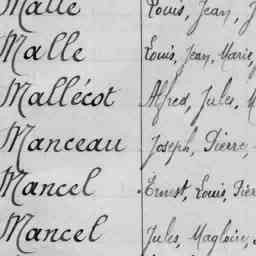 Malle Louis, Jean, J
Malle Louis, Jean, Marie,
Mallécot Alfred, Jules, M
Manceau Joseph, Pierre,
Mancel Ernest, Louis, Pier
Mancel Jules, Magloire,